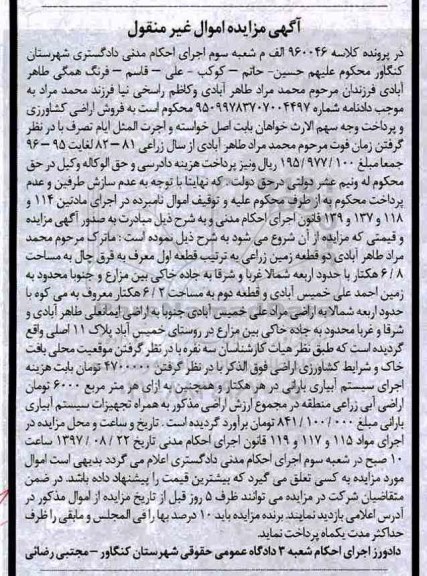 آگهی مزایده اموال غیر منقول
در پرونده کلاسه ۹۶۰۰۴۶ الف م شعبه سوم اجرای احکام مدنی دادگستری شهرستان
کنگاور محکوم علیهم حسین- حاتم – کوکب - علی – قاسم – فرنگ همگی طاهر
آبادی فرزندان مرحوم محمد مراد طاهر آبادی وکاظم راسخی نیا فرزند محمد مراد به
موجب دادنامه شماره ۹۵۰۹۹۷۸۳۷۰۷۰۰۴۴۹۷ محکوم است به فروش اراضی کشاورزی
و پرداخت وجه سهم الارث خواهان بابت اصل خواسته و اجرت المثل ایام تصرف با در نظر
گرفتن زمان فوت مرحوم محمد مراد طاهر آبادی از سال زراعی ۸۱ – ۸۲ لغایت ۹۵ – ۹۶
جمعا مبلغ ۱۹۵/۹۷۷/۱۰۰ ریال ونیز پرداخت هزینه دادرسی و حق الوکاله وکیل در حق
محکوم له ونیم عشر دولتی درحق دولت . که نهایتا با توجه به عدم سازش طرفین و عدم
پرداخت محکوم به از طرف محکوم علیه و توقیف اموال نامبرده در اجرای مادتین ۱۱۴ و
۱۱۸ و ۱۳۷ و ۱۳۹ قانون اجرای احکام مدنی و به شرح ذیل مبادرت به صدور آگهی مزایده
و قیمتی که مزایده از آن شروع می شود به شرح ذیل نموده است : ماترک مرحوم محمد
مراد طاهر آبادی دو قطعه زمین زراعی به ترتیب قطعه اول معرف به فرق چال به مساحت
۶/۸ هکتار با حدود اربعه شمالا غربا و شرقا به جاده خاکی بین مزارع و جنوبا محدود به
زمین احمد علی خمیس آبادی و قطعه دوم به مساحت ۶/۲ هکتار معروف به می کوه با
حدود اربعه شمالا به اراضی مراد علی خمیس آبادی جنوبا به اراضی ایمانعلی طاهر آبادی و
شرقا و غربا محدود به جاده خاکی بین مزارع در روستای خمیس آباد پلاک ۱۱ اصلی واقع
گردیده است که طبق نظر هیات کارشناسان سه نفره با در نظر گرفتن موقعیت محلی بافت
خاک و شرایط کشاورزی اراضی فوق الذکر با در نظر گرفتن ۴۷۰۰۰۰۰ تومان بابت هزینه
اجرای سیستم آبیاری بارانی در هر هکتار و همچنین به ازای هر متر مربع ۶۰۰۰ تومان
اراضی آبی زراعی منطقه در مجموع ارزش اراضی مذکور به همراه تجهیزات سیستم آبیاری
بارانی مبلغ ۸۴۱/۱۰۰/۰۰۰ تومان برآورد گردیده است . تاریخ و ساعت و محل مزایده در
اجرای مواد ۱۱۵ و ۱۱۷ و ۱۱۹ قانون اجرای احکام مدنی تاریخ ۲۲ / ۰۸ / ۱۳۹۷ ساعت
۱۰ صبح در شعبه سوم اجرای احکام مدنی دادگستری اعلام می گردد بدیهی است اموال
مورد مزایده به کسی تعلق می گیرد که بیشترین قیمت را پیشنهاد داده باشد. در ضمن
متقاضیان شرکت در مزایده می توانند ظرف ۵ روز قبل از تاریخ مزایده از اموال مذکور در
آدرس اعلامی بازدید نمایند. برنده مزایده باید ۱۰ درصد بها را فی المجلس و مابقی را ظرف
حداکثر مدت یکماه پرداخت نماید.
دادورز اجرای احکام شعبه ۳ دادگاه عمومی حقوقی شهرستان کنگاور – مجتبی رضائی